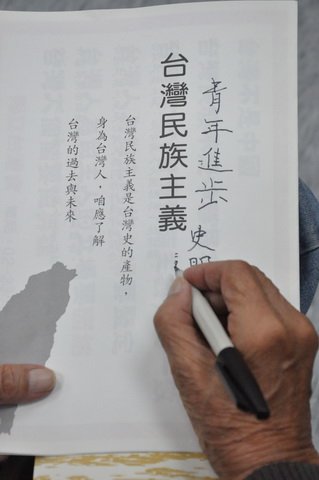 青年進步 史明
台灣民族主義
台灣民族主義是台灣史的產物，
身為台灣人，咱應了解
台灣的過去與未來